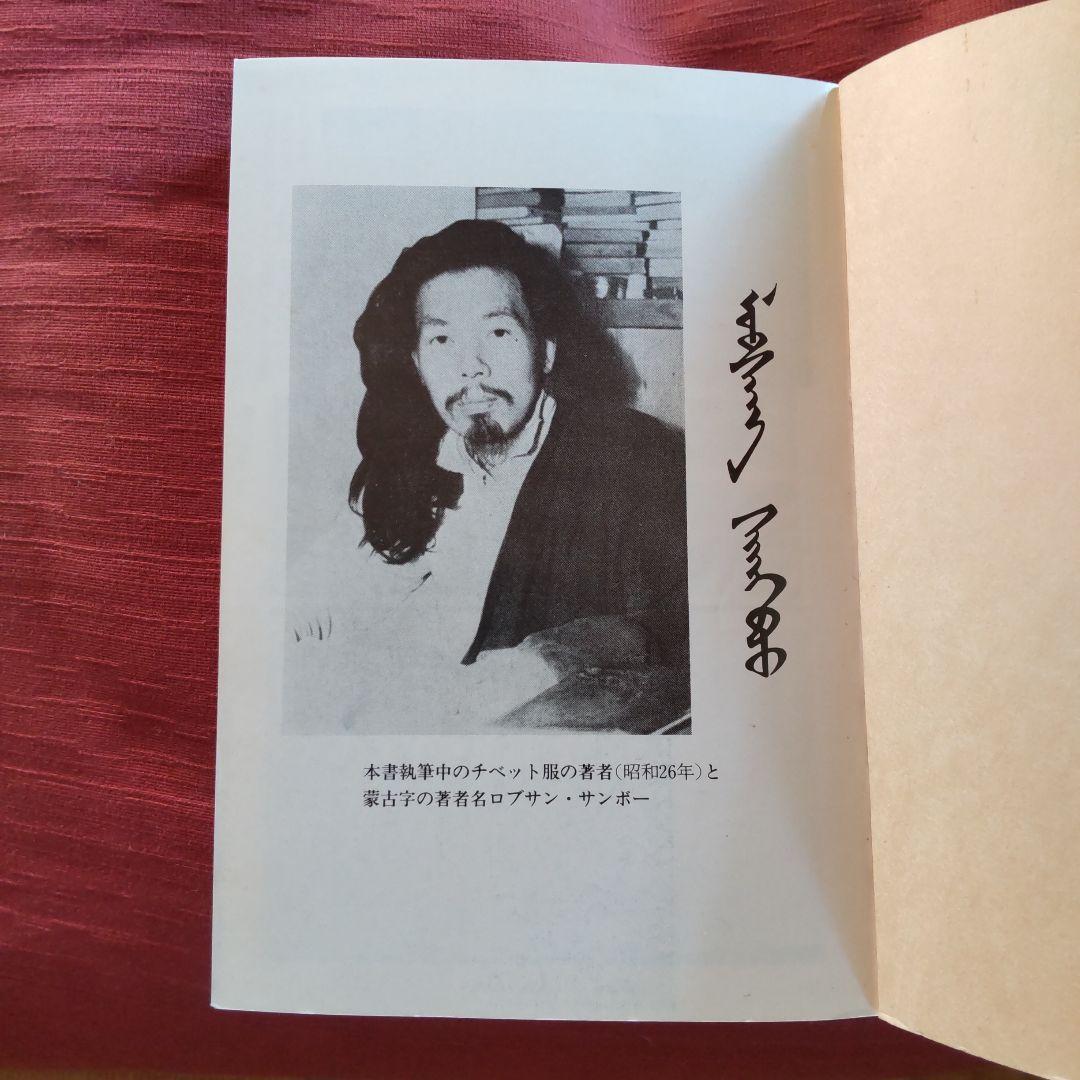 本書執筆中のチベット服の著者(昭和26年)と
蒙古字の著者名ロブサン・サンボー